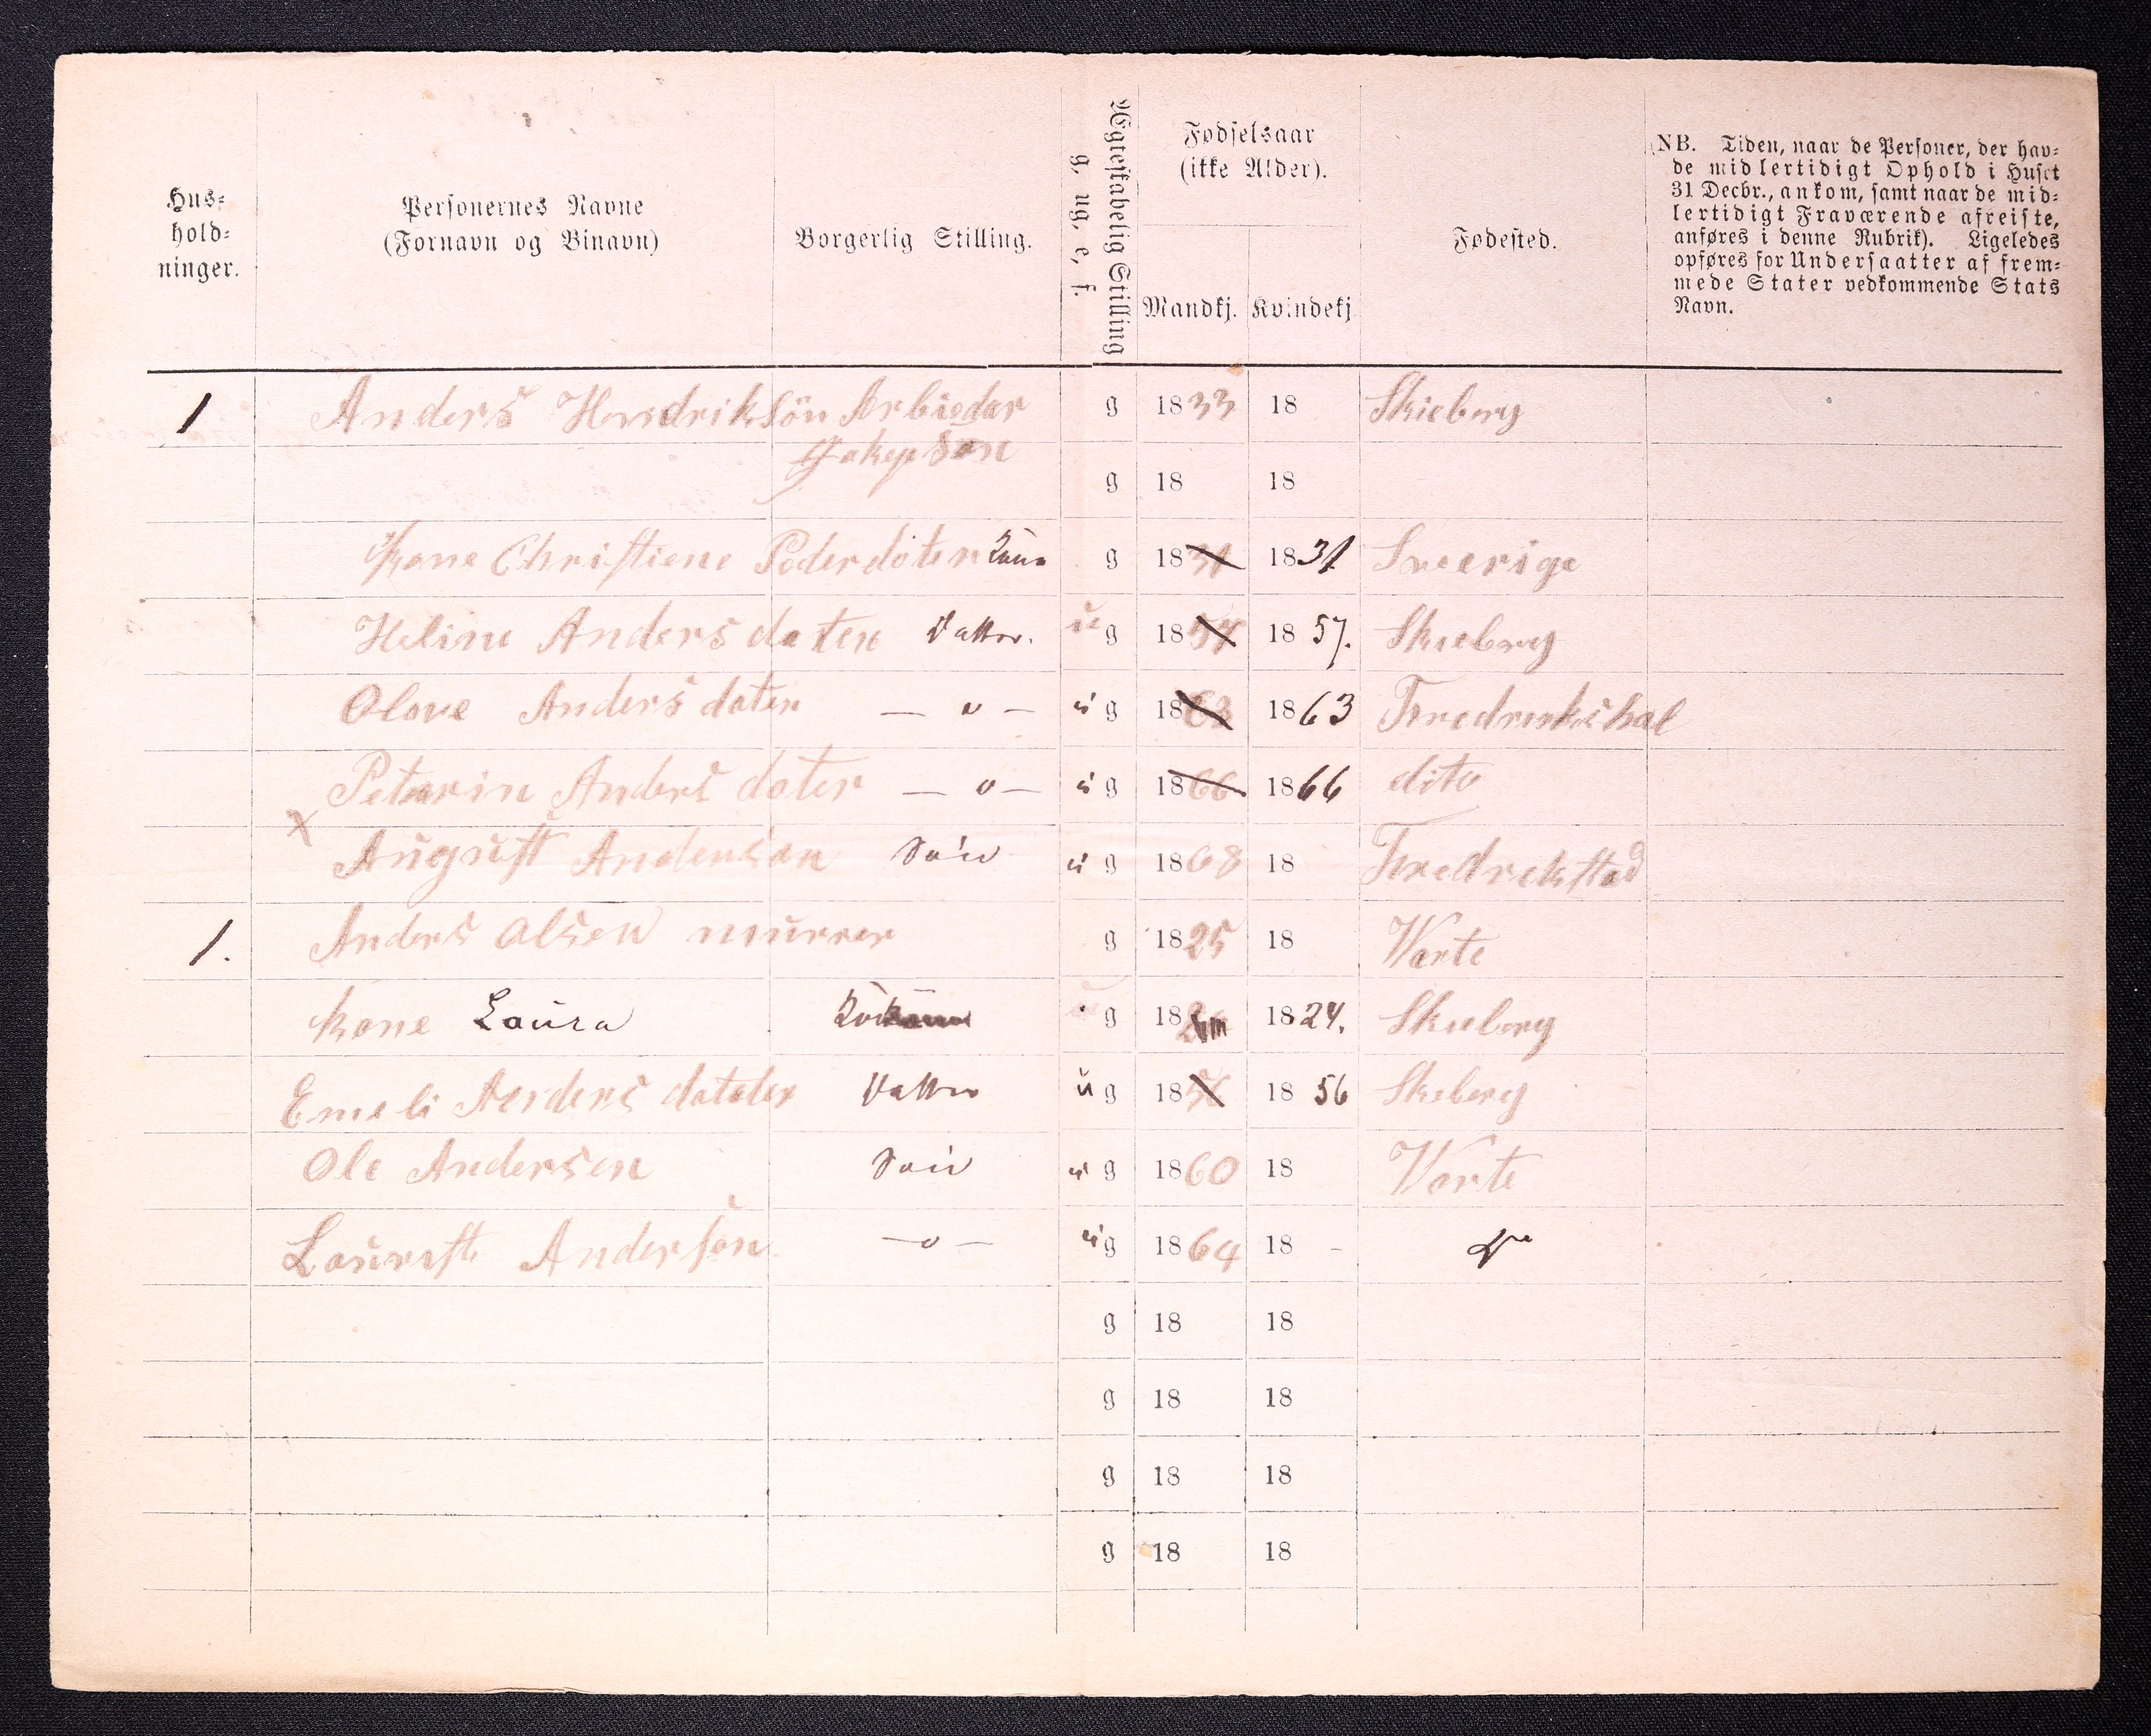 Hus-
hold-
ninger.
Personernes Navne
(Fornavn og Binavn)
Borgerlig Stilling.
Ægteskabelig Stilling
g, ug, e, f.
Fødselsaar
(ikke Alder).
Mandkj. Kvindekj
Fødested.
(NB. Tiden, naar de Personer, der hav-
de midlertidigt Ophold i Huset
31 Decbr., ankom, samt naar de mid-
lertidigt Fraværende afreiste,
anføres i denne Rubrik). Ligeledes
opføres for Undersaatter af frem-
mede Stater vedkommende Stats
Navn.
1 Anders Hendriksön Arbieder g 1833 18 Skieberg
g 18 18
Kone Christiene Pederdoter Kone g 1831 1831 Sverige
Heline Anders dater Datter. u g 1857 1857. Skieberg
Olave Anders dater — " — u g 1863 1863 Fredrikshal
Petarin Anders dater — " — u g 1866 1866 dito
x August Anderson Søn u g 1868 18 Fredrekstad
1. Anders Olsen murrer g 1825 18 Varte
Kone Laura g 18 1824. Skieberg
Emeli Anders datater Datter u g 1856 1856 Skeberg
Ole Andersen Søn u g 1860 18 Varte
Laurits Andersön — " — u g 1864 18 - do
g 18 18
g 18 18
g 18 18
g 18 18